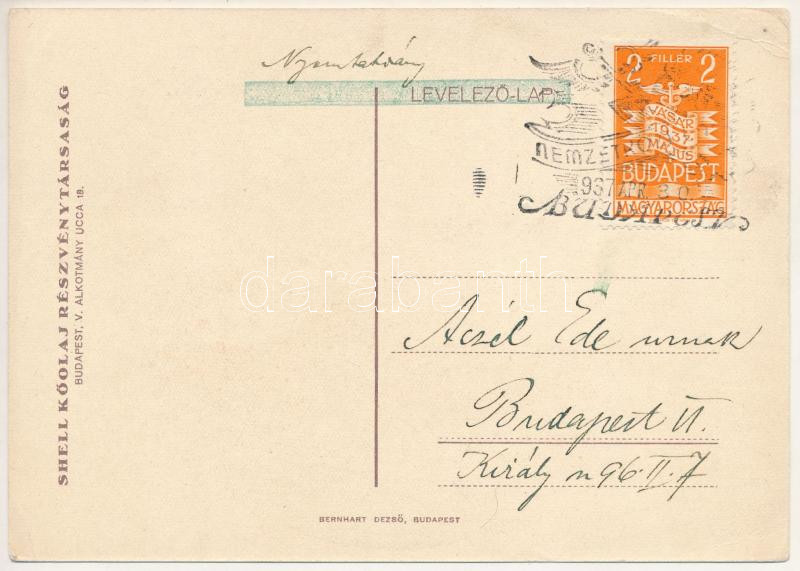 Nyomtatvány
LEVELEZŐ-LAP
2 FILLÉR 2
VÁSÁR
1937
MÁJUS
BUDAPEST
MAGYARORSZÁG
NEMZETK
937 APR. 30
BUDAPEST
SHELL KŐOLAJ RÉSZVÉNYTÁRSASÁG
BUDAPEST, V. ALKOTMÁNY UCCA 18.
darabanth
Aczél Ede urnak
Budapest
Király u 96. II. 7
BERNHART DEZSŐ, BUDAPEST